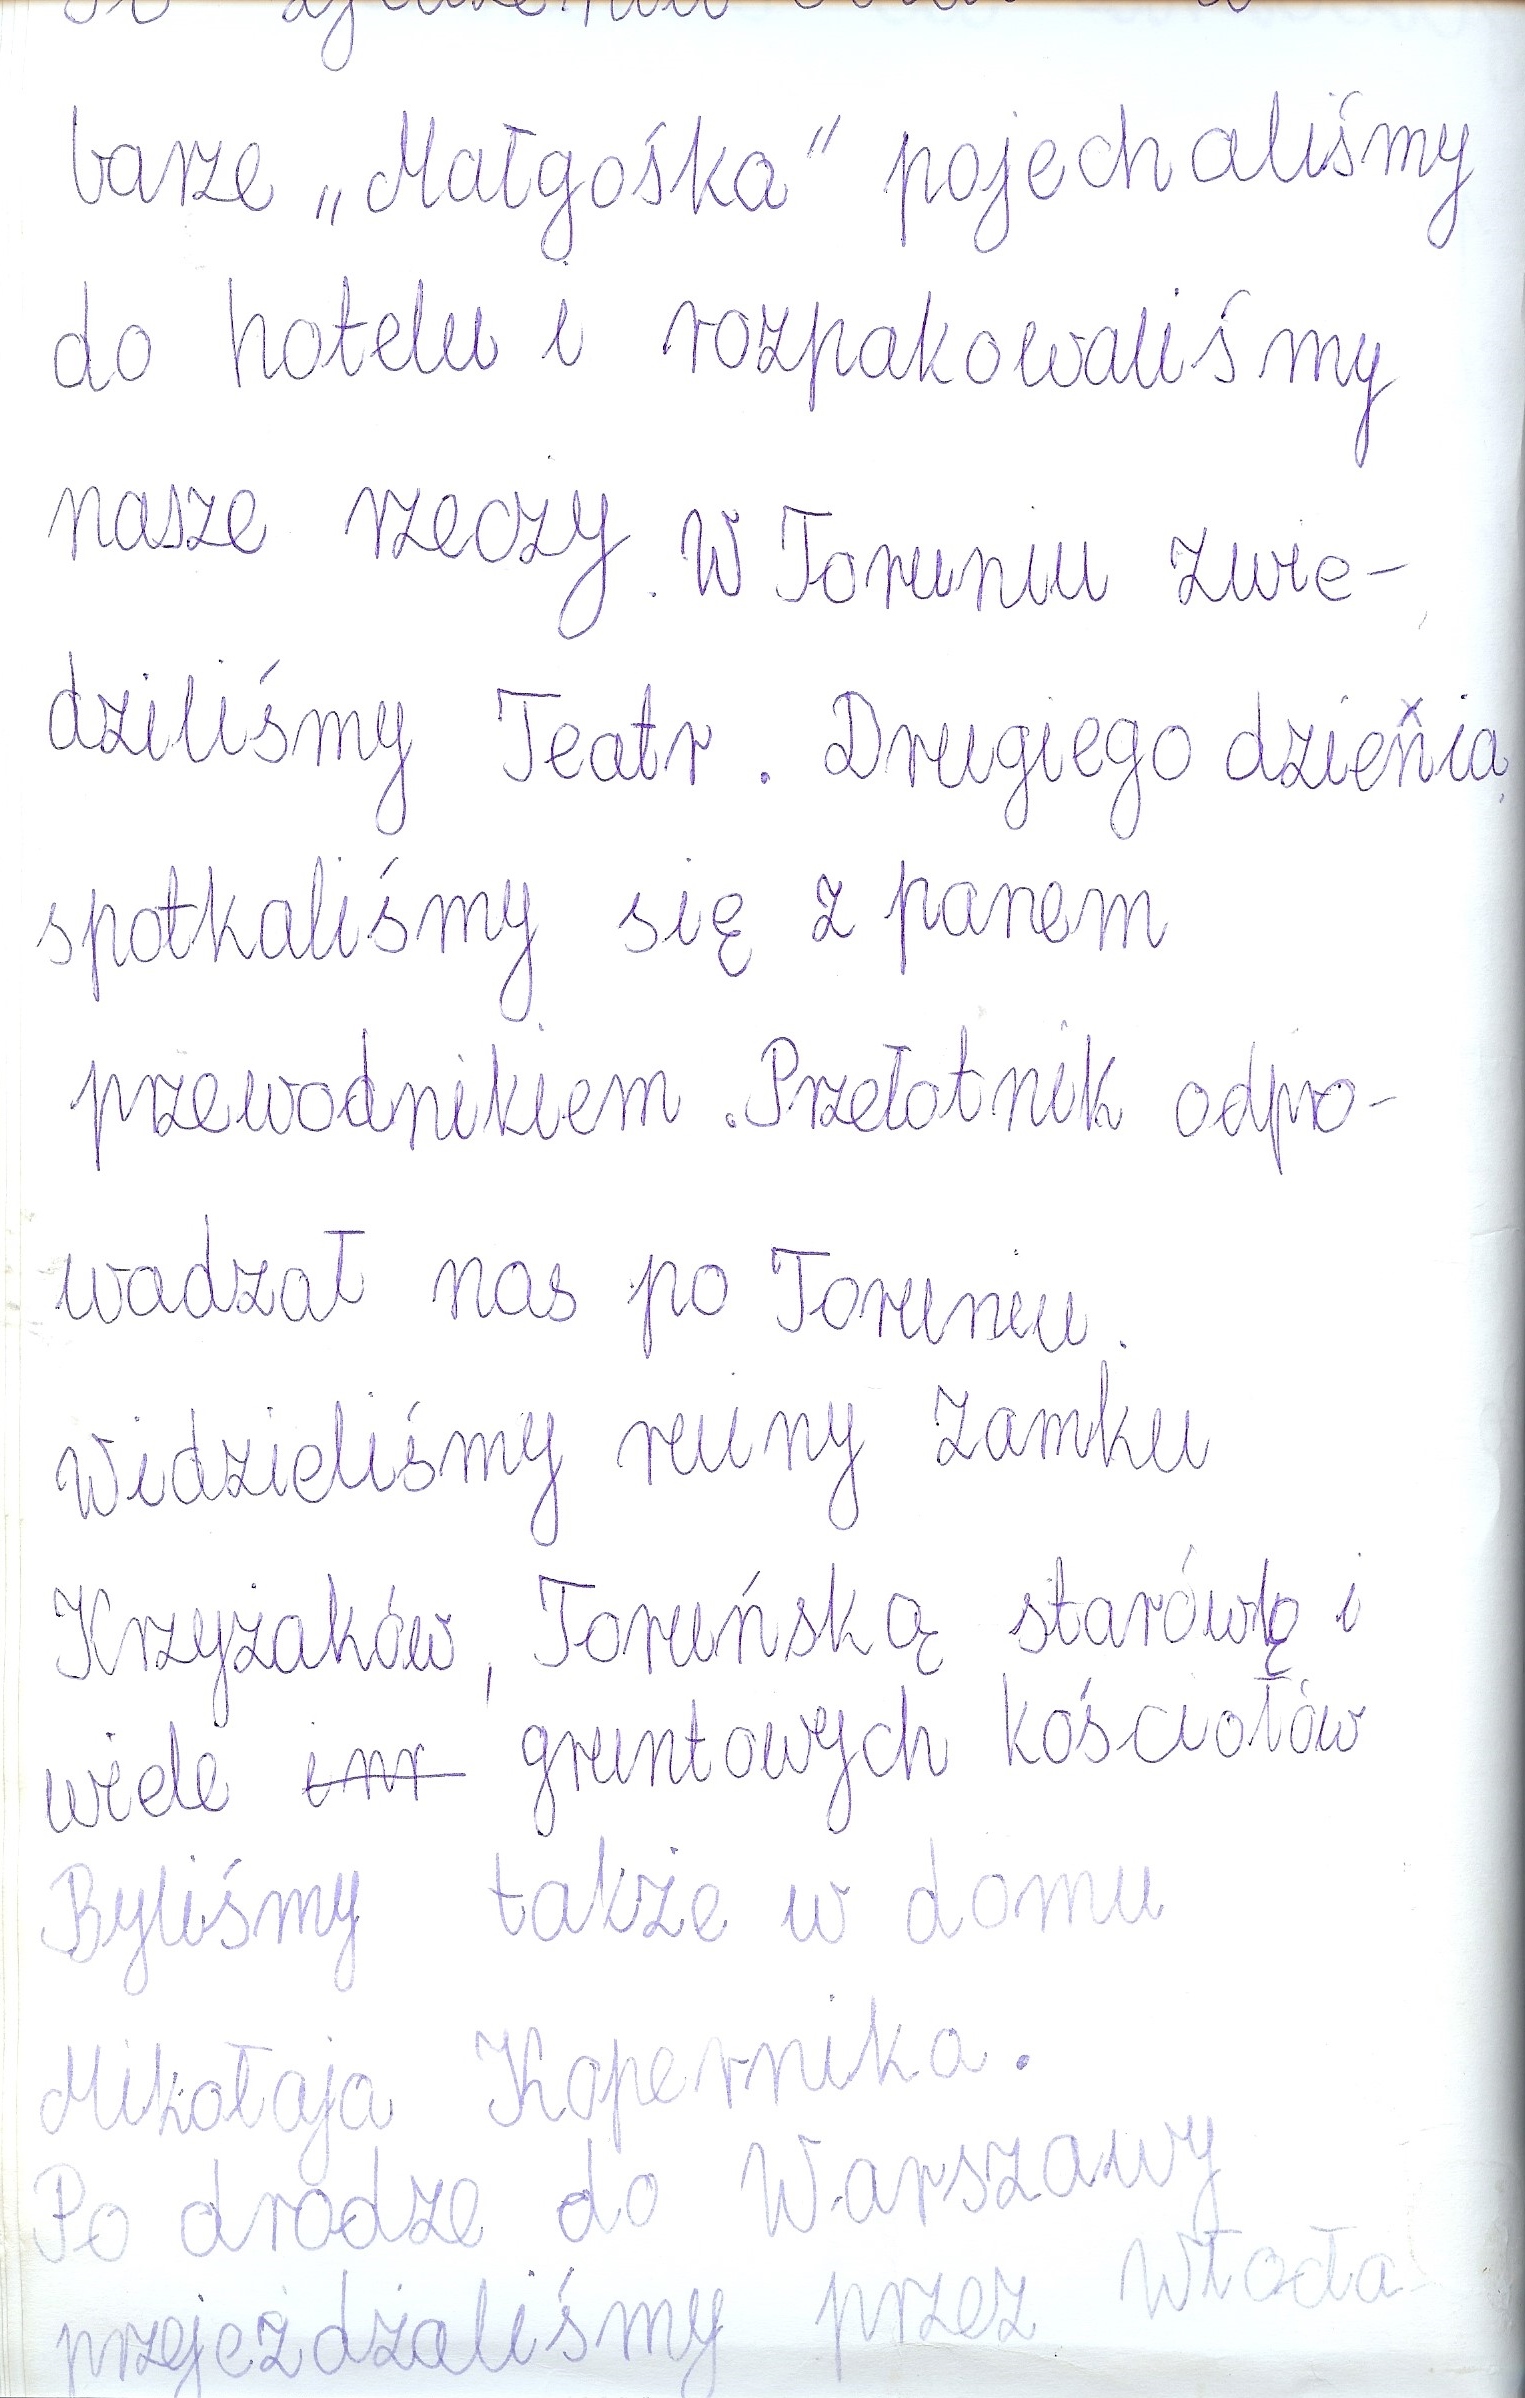 barze „Małgośka" pojechaliśmy
do hotelu i rozpakowaliśmy
nasze rzeczy. W Toruniu zwie-
dziliśmy Teatr. Drugiego dzienia
spotkaliśmy się z panem
przewodnikiem. Przełotnik odpro-
wadzał nas po Toruniu.
Widzieliśmy ruiny zamku
Krzyżaków, Toruńską starówkę i
wiele gruntowych kościołów
Byliśmy także w domu
Mikołaja Kopernika.
Po drodze do Warszawy
przejeżdżaliśmy przez Włocła